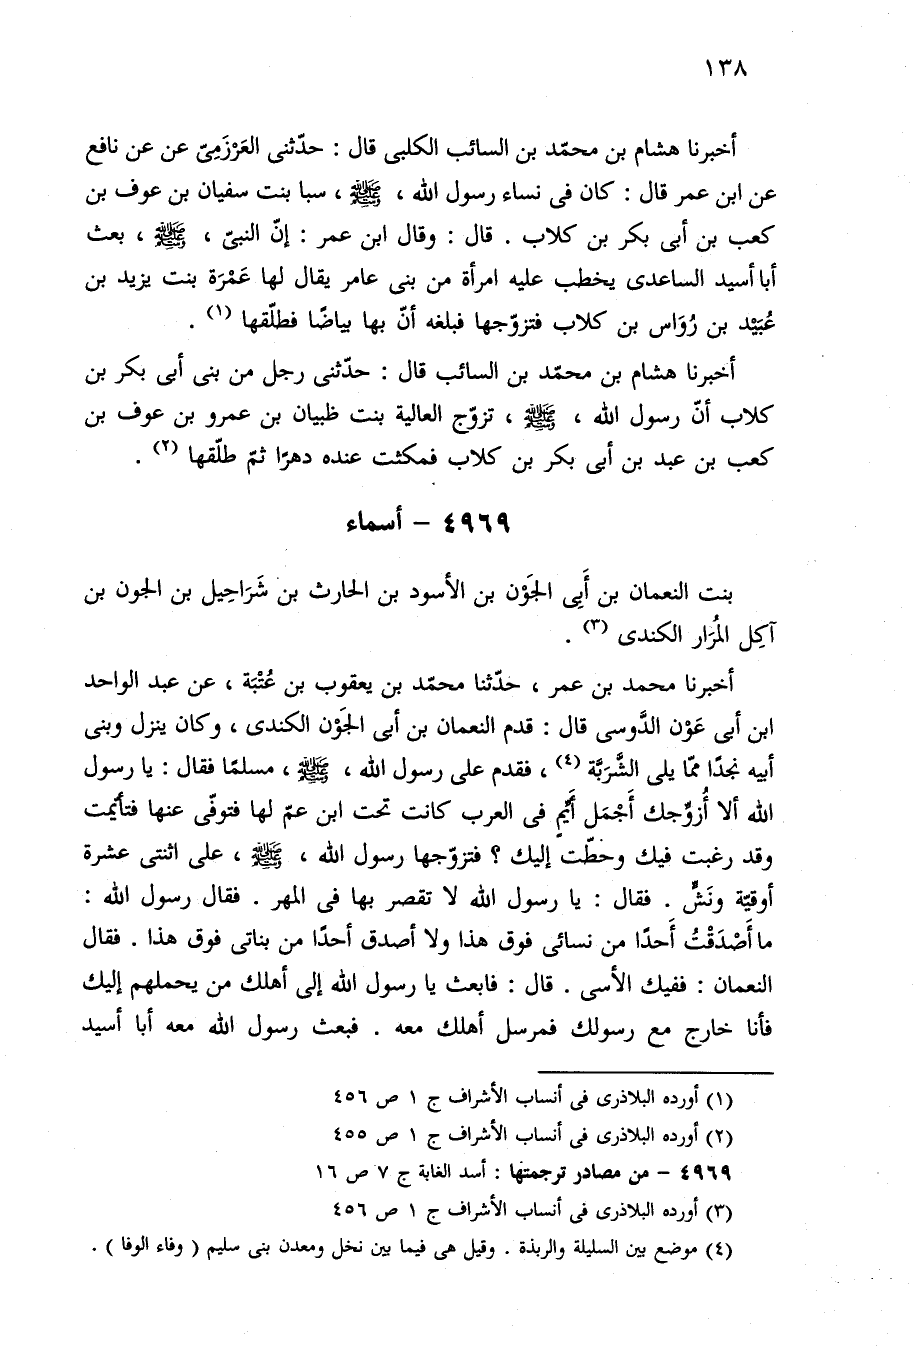 ١٣٨
أخبرنا هشام بن محمّد بن السائب الكلبى قال : حدّثنى العَرْزَمِىّ عن عن نافع
عن ابن عمر قال : كان فى نساء رسول الله ، ﷺ ، سبا بنت سفيان بن عوف بن
كعب بن أبى بكر بن كلاب . قال : وقال ابن عمر : إنّ النبىّ ، ﷺ ، بعث
أبا أسيد الساعدى يخطب عليه امرأة من بنى عامر يقال لها عَمْرَة بنت يزيد بن
عُبَيْد بن رُوَاس بن كلاب فتزوّجها فبلغه أنّ بها بياضًا فطلّقها (١) .
أخبرنا هشام بن محمّد بن السائب قال : حدّثنى رجل من بنى أبى بكر بن
كلاب أنّ رسول الله ، ﷺ ، تزوّج العالية بنت ظبيان بن عمرو بن عوف بن
كعب بن عبد بن أبى بكر بن كلاب فمكثت عنده دهرًا ثمّ طلّقها (٢) .
٤٩٦٩ – أسماء
بنت النعمان بن أَبِى الجَوْن بن الأسود بن الحارث بن شَرَاحِيل بن الجون بن
آكِل المُرَار الكندى (٣) .
أخبرنا محمد بن عمر ، حدّثنا محمّد بن يعقوب بن عُتْبَة ، عن عبد الواحد
ابن أبى عَوْن الدَّوسى قال : قدم النعمان بن أبى الجَوْن الكندى ، وكان ينزل وبنى
أبيه نجدًا ممّا يلى الشَّرَبَّة (٤) ، فقدم على رسول الله ، ﷺ ، مسلمًا فقال : يا رسول
الله ألا أُزوِّجك أَجْمَل أَيِّمٍ فى العرب كانت تحت ابن عمّ لها فتوفّى عنها فتأيّمت
وقد رغبت فيك وحطّت إليك ؟ فتزوّجها رسول الله ، ﷺ ، على اثنتى عشرة
أوقيّة ونَشٍّ . فقال : يا رسول الله لا تقصر بها فى المهر . فقال رسول الله :
ما أَصْدَقْتُ أَحدًا من نسائى فوق هذا ولا أصدق أحدًا من بناتى فوق هذا . فقال
النعمان : ففيك الأسى . قال : فابعث يا رسول الله إلى أهلك من يحملهم إليك
فأنا خارج مع رسولك فمرسل أهلك معه . فبعث رسول الله معه أبا أسيد
(١) أورده البلاذرى فى أنساب الأشراف ج ١ ص ٤٥٦
(٢) أورده البلاذرى فى أنساب الأشراف ج ١ ص ٤٥٥
٤٩٦٩ – من مصادر ترجمتها : أسد الغابة ج ٧ ص ١٦
(٣) أورده البلاذرى فى أنساب الأشراف ج ١ ص ٤٥٦
(٤) موضع بين السليلة والربذة . وقيل هى فيما بين نخل ومعدن بنى سليم ( وفاء الوفا ) .